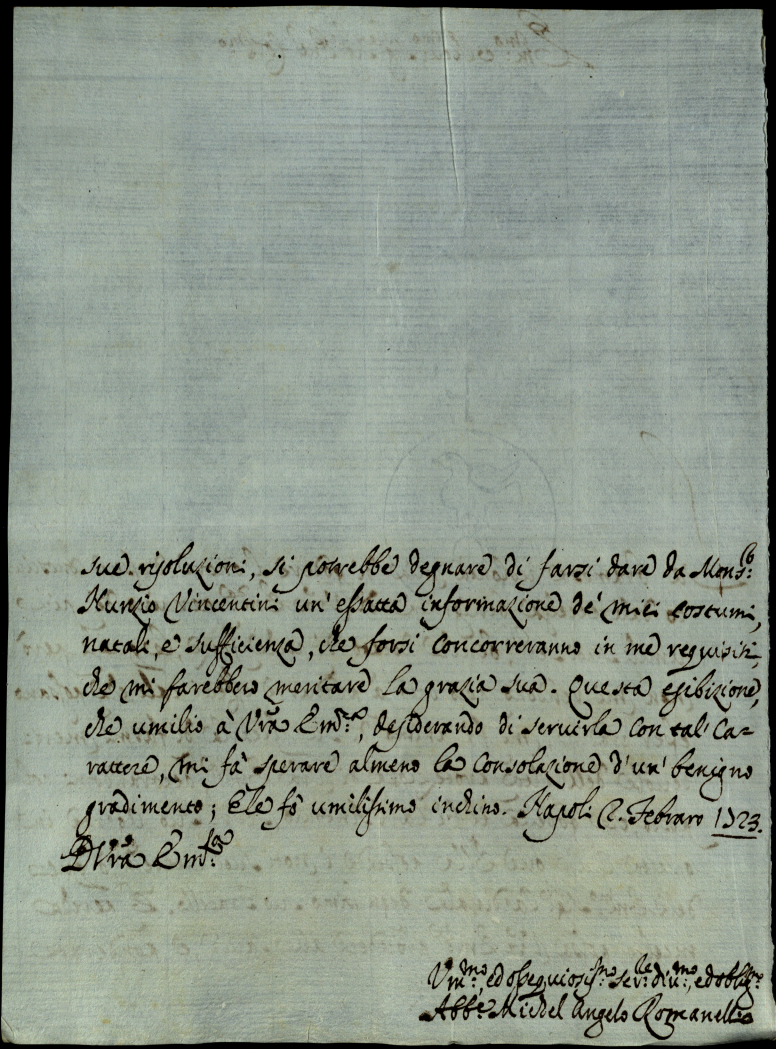 sue risoluzioni, si potrebbe degnare di farsi dare da Monsr:
Nunzio Vincentini un' esatta informazione de' miei costumi,
natali, e sufficienza, che forsi concorreranno in me requisiti,
che mi farebbero meritare la grazia sua. Questa esibizione,
che umilio à Vr̃a Em.za, desiderando di servirla con tal' Ca-
rattere, mi fà sperare almeno la consolazione d'un' benigno
gradimento; E le fò umilissimo inchino. Napoli 2. Febraro 1723.
D Vr̃a Em.za
Vm̃mo, ed ossequiosissmo servre divmo, ed obligmo
Abbe Michel Angelo Romanelli